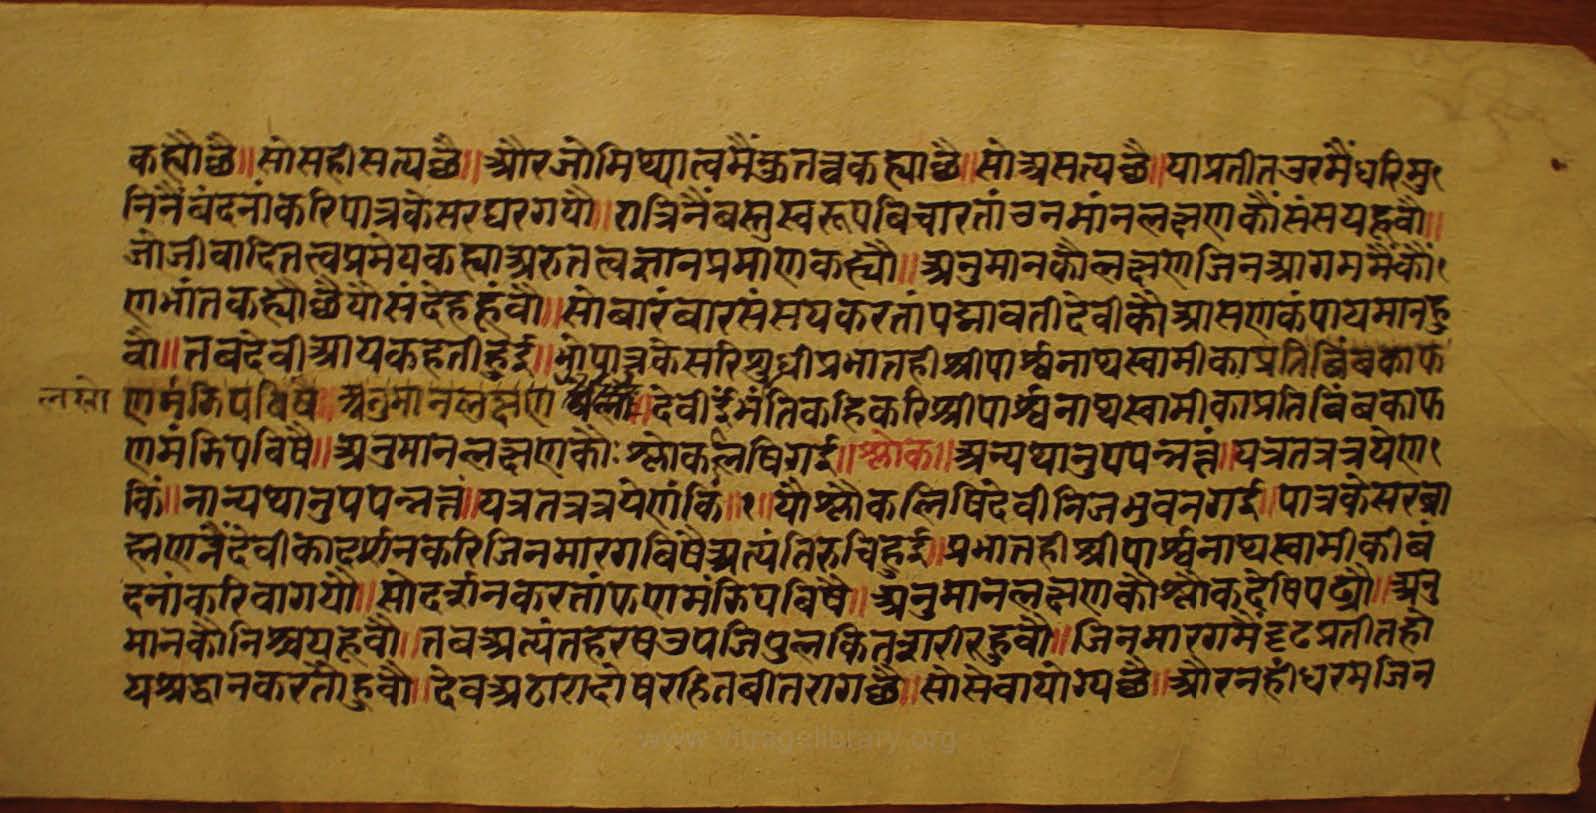 कह्यौछै॥सोसहीसत्यछै॥औरजोमिथ्यात्वमैंकुतत्वकह्याछै॥सोअसत्यछै॥याप्रतीतउरमैंधरिमु
निनैंबंदनांकरिपात्रकेसरघरगयौ॥रात्रिनैंबस्तुस्वरूपविचारतांउनमांनलक्षणकौंसंसयहूवौ॥
जोजीवादितत्वप्रमेयकह्याअरुतत्वज्ञानप्रमाणकह्यौ॥अनुमानकौलक्षणजिनआगममैंकौं
णभांतकह्यौछैयौसंदेहहूंवौ॥सोबारंबारसंसयकरतांपद्मावतीदेवीकौआसणकंपायमानहु
वौ॥तबदेवीआयकहतीहुई॥भोपात्रकेसरिसुधीप्रभातहीश्रीपार्श्वनाथस्वामीकाप्रतिबिंबकाफ
णमंझिपविषै॥अनुमानलक्षण देवींईमंतिकहिकरिश्रीपार्श्वनाथस्वामीकाप्रतिबिंबकाफ
णमंझिपविषै॥अनुमानलक्षणकौःश्लोकलषिगई॥श्लोक॥अन्यथानुपपन्नत्वं॥यत्रतत्रत्रयेण
किं॥नान्यथानुपपन्नत्वं॥यत्रतत्रत्रयेणंकिं॥१॥यौश्लौकलिषिदेवीनिजभुवनगई॥पात्रकेसरब्रा
ह्मणनैंदेवीकादर्शनकरिजिनमारगविषैअत्यंतिरुचिहुई॥प्रभातहीश्रीपार्श्वनाथस्वामीकीबं
दनांकरिवागयौ॥सोदर्शनकरतांफणमंझिपबिषै॥अनुमानलक्षणकौश्लौकदेषिपढ्यौ॥अनु
मानकौनिश्चयहूवौ॥तबअत्यंतहरषउपजिपुलकितशरीरहुवौ॥जिनमारगमैंदृढप्रतीतहो
यश्रद्धानकरतौहुवौ॥देवअठारादोषरहितबीतरागछै॥सोसेवायोग्यछै॥औरनहींधरमजिन
www.vitragelibrary.org